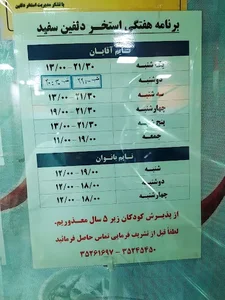 با تشکر مدیریت استخر دلفین
برنامه هفتگی استخر دلفین سفید
تایم آقایان
شنبه ۲۱/۳۰-۱۳/۰۰
دوشنبه
سه شنبه ۲۱/۳۰-۱۳/۰۰
چهارشنبه ۲۱/۳۰-۱۹/۰۰
پنج شنبه ۲۱/۳۰-۱۳/۰۰
جمعه ۱۹/۰۰-۱۱/۰۰
تایم بانوان
شنبه ۱۹/۰۰-۱۲/۰۰
دوشنبه ۱۸/۰۰-۱۲/۰۰
چهارشنبه ۱۸/۰۰-۱۲/۰۰
از پذیرش کودکان زیر ۵ سال معذوریم.
لطفاً قبل از تشریف فرمایی تماس حاصل فرمائید
۳۵۲۶۱۶۹۷-۳۵۲۴۵۴۵۰